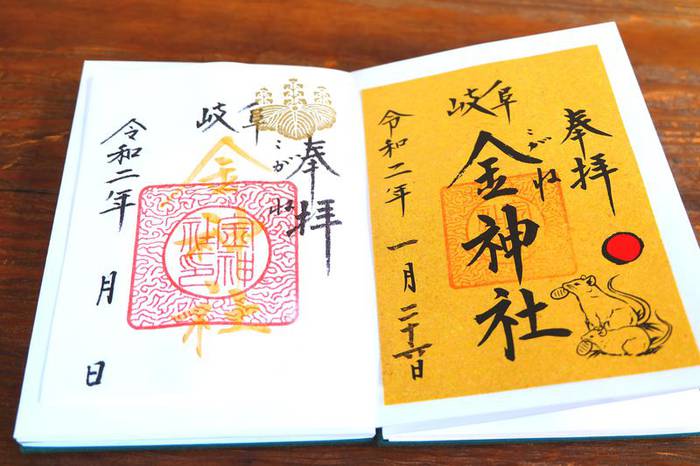 奉拝
岐阜
こがね
金神社
令和二年 一月二十六日
奉拝
岐阜
こがね
金神社
令和二年 月 日